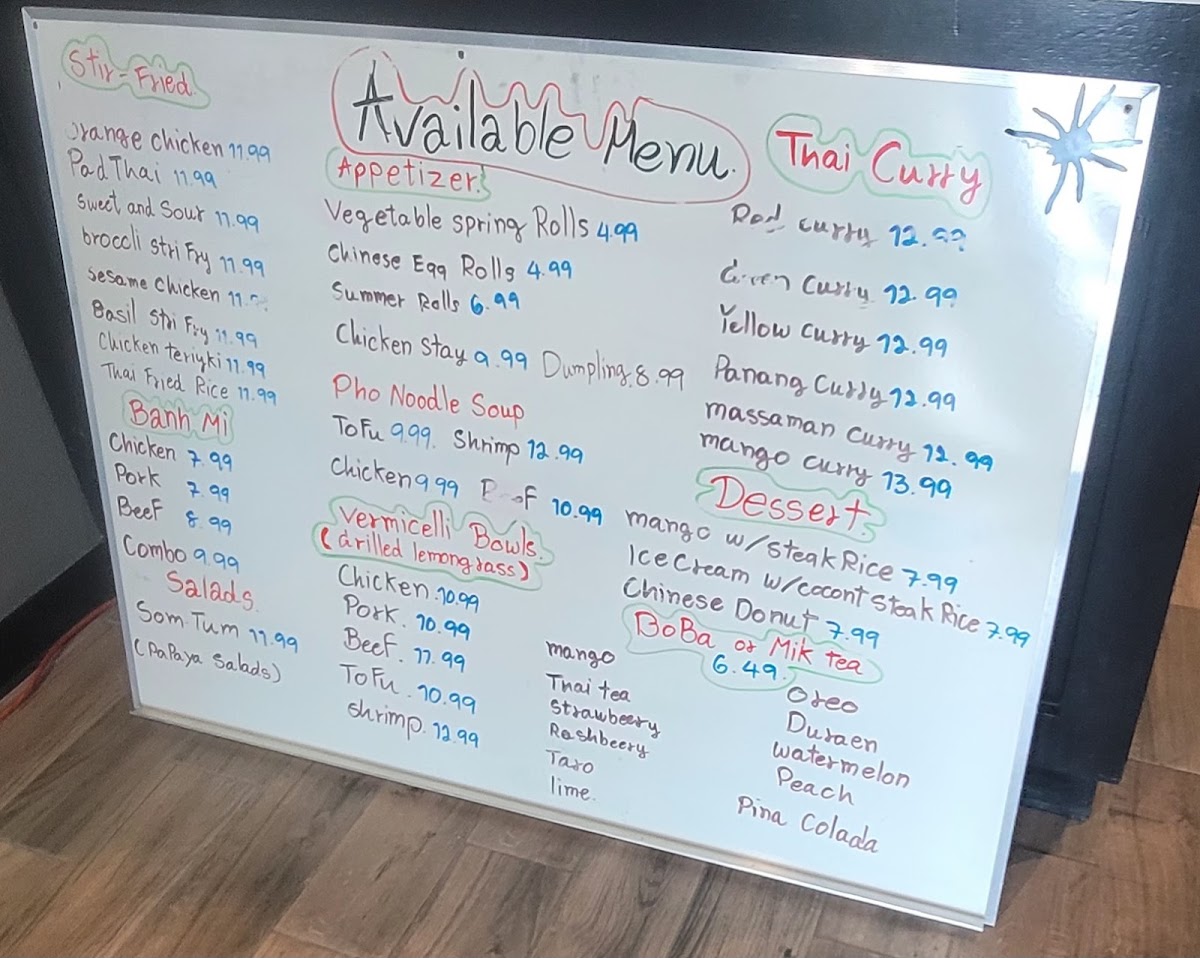 Available Menu.
Stir-Fried
Orange chicken 11.99
Pad Thai 11.99
Sweet and Sour 11.99
broccli stri Fry 11.99
sesame chicken 11.
Basil Stri Fry 11.99
Chicken teriyki 11.99
Thai Fried Rice 11.99
Banh Mi
Chicken 7.99
Pork 7.99
Beef 8.99
Combo 9.99
Salads.
Som Tum 11.99
(PaPaya Salads)
Appetizer.
Vegetable spring Rolls 4.99
Chinese Egg Rolls 4.99
Summer Rolls 6.99
Chicken Stay 9.99 Dumpling 8.99
Pho Noodle Soup
ToFu 9.99. Shrimp 12.99
Chicken 9.99 Beef 10.99
Vermicelli Bowls.
(Grilled lemongrass)
Chicken. 10.99
Pork. 10.99
Beef. 11.99
ToFu. 10.99
shrimp. 12.99
Thai Curry
Red curry 12.99
Green Curry 12.99
Yellow Curry 12.99
Panang Curry 12.99
massaman Curry 12.99
mango curry 13.99
Dessert.
mango w/steak Rice 7.99
Ice Cream w/cocont steak Rice 7.99
Chinese Donut 7.99
BoBa or Mik tea
6.49.
mango
Thai tea
Strawbeery
Rashbeery
Taro
lime.
Oreo
Duraen
watermelon
Peach
Pina Colada